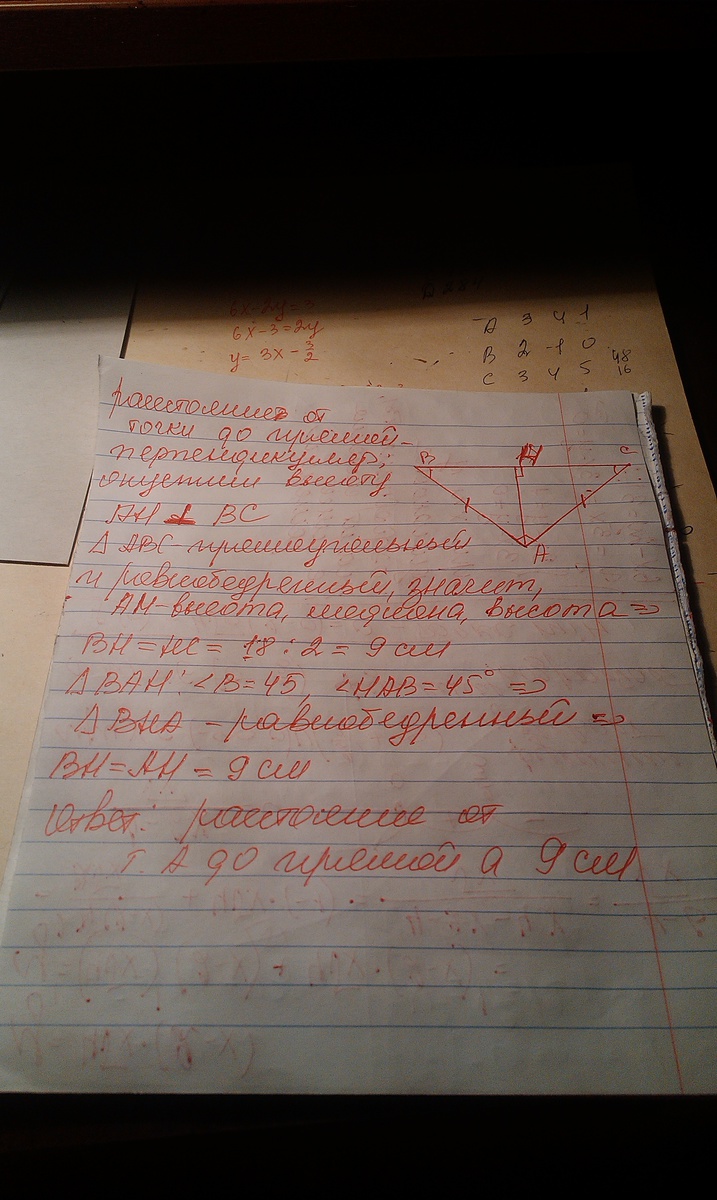 6x-2y=3
6x-3=2y
y= 3x - 3/2
A 3 4 1
B 2 -1 0
C 3 4 5
48
16
расстояние от
точки до прямой-
перпендикуляр;
опустим высоту
AH ⊥ BC
B
H
C
A
Δ ABC-прямоугольный
и равнобедренный, значит,
AH-высота, медиана, высота ⇒
BH=HC= 18:2= 9 см
Δ BAH: <B=45, <HAB=45° ⇒
Δ BHA - равнобедренный ⇒
BH=AH = 9 см
Ответ: расстояние от
т. A до прямой a 9 см